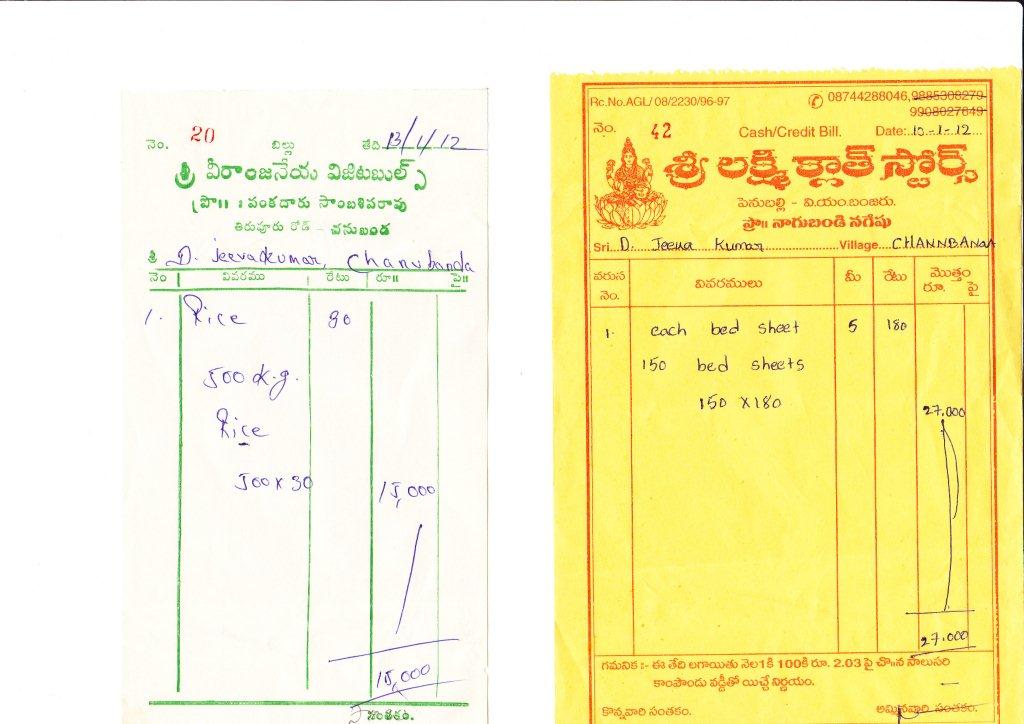 నెం. 20 బిల్లు తేది 13/1/12
శ్రీ వీరాంజనేయ విజిటబుల్స్
ప్రొ॥ : వంకదారు సాంబశివరావు
తిరువూరు రోడ్ - చనుబండ
శ్రీ D. Jeevakumar, Chanubanda
నెం వివరము రేటు రూ॥ పై॥
1. Rice 30
500 K.g.
Rice
500 x 30 15,000
15,000
సంతకం.
Rc.No.AGL/ 08/2230/96-97 08744288046, 9885308279
9908027649
నెం. 42 Cash/Credit Bill. Date: 10-1-12
శ్రీ లక్ష్మి క్లాత్ స్టోర్స్
పెనుబల్లి - వి.యం.బంజరు.
ప్రొ॥ నాగుబండి నగేషు
Sri D. Jeeva Kumar Village CHANNBANDA
వరుస నెం. వివరములు మీ రేటు మొత్తం రూ. పై
1. each bed sheet 5 180
150 bed sheets
150 X180 27.000
27.000
గమనిక :- ఈ తేది లగాయితు నెల1కి 100కి రూ. 2.03 పై చొ॥న సాలుసరి
కాంపౌండు వడ్డీతో యిచ్చే నిర్ణయం.
కొన్నవారి సంతకం. అమ్మినవారి సంతకం.